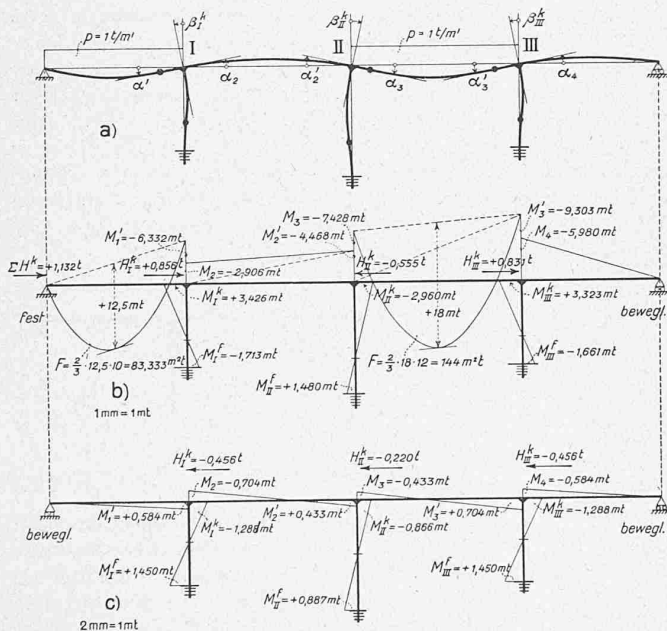 β_I^k β_II^k β_III^k
p = 1 t/m' I II p = 1 t/m' III
α' α₂ α₂' α₃ α₃' α₄
a)
M₃ = −7,428 mt M₃' = −9,303 mt
M₁' = −6,332 mt M₂' = −4,468 mt M₄ = −5,980 mt
ΣH^k = +1,132 t H_I^k = +0,856 t H_II^k = −0,555 t H_III^k = +0,831 t
M₂ = −2,906 mt
+12,5 mt M_I^k = +3,426 mt M_II^k = −2,960 mt M_III^k = +3,323 mt
+18 mt
fest bewegl.
F = 2/3 · 12,5 · 10 = 83,333 m²t M_I^F = −1,713 mt F = 2/3 · 18 · 12 = 144 m²t M_III^F = −1,661 mt
b) M_II^F = +1,480 mt
1 mm = 1 mt
H_I^k = −0,456 t H_II^k = −0,220 t H_III^k = −0,456 t
M₂ = −0,704 mt M₃ = −0,433 mt M₄ = −0,584 mt
M₁' = +0,584 mt M₂' = +0,433 mt M₃ = +0,704 mt
bewegl. M_I^k = −1,288 mt M_II^k = −0,866 mt M_III^k = −1,288 mt bewegl.
M_I^F = +1,450 mt M_III^F = +1,450 mt
c) M_II^F = +0,887 mt
2 mm = 1 mt